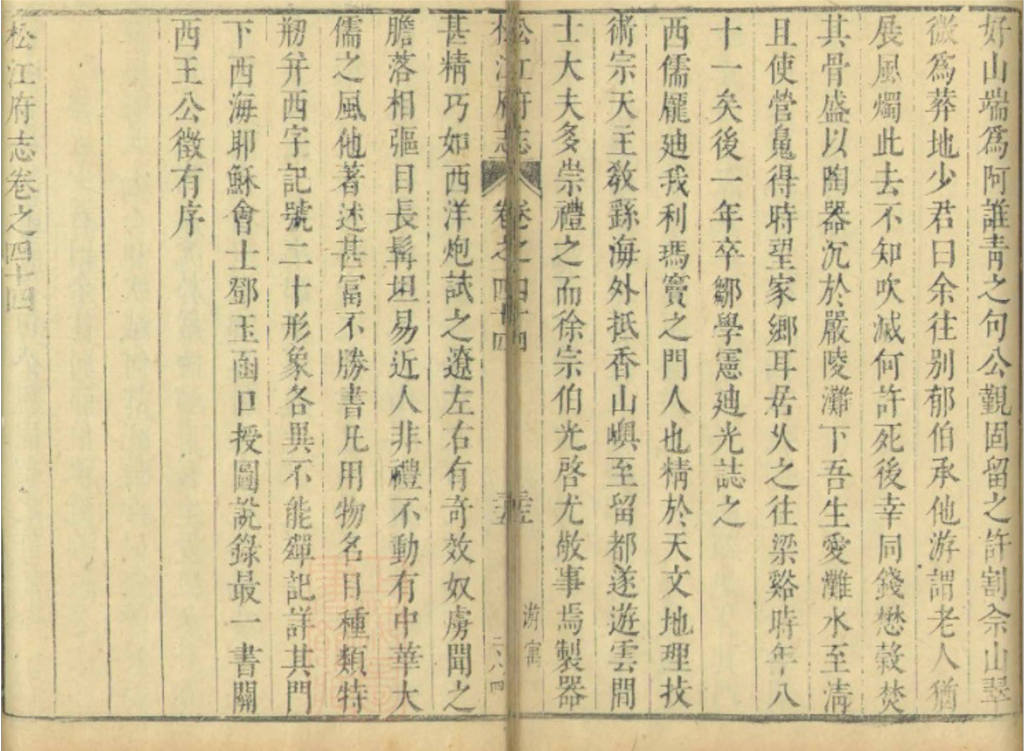 好山端爲阿誰靑之句公覿固留之許割佘山翠
微爲莽地少君曰余往别郁伯承他游謂老人猶
展風燭此去不知吹滅何許死後幸同錢懋榖焚
其骨盛以陶器沉於嚴陵灘下吾生愛灘水至淸
且使營䰟得時望家鄉耳居乆之往梁谿時年八
十一矣後一年卒鄒學憲廸光誌之
西儒龎廸我利瑪竇之門人也精於天文地理技
術宗天主敎繇海外抵香山嶼至留都遂遊雲間
士大夫多崇禮之而徐宗伯光啓尤敬事焉製器
松江府志 卷之四十四 游寓
甚精巧如西洋炮試之遼左右有奇效奴虜聞之
膽落相驅目長髯坦易近人非禮不動有中華大
儒之風他著述甚富不勝書凡用物名目種類特
剏并西字記號二十形象各異不能殫記詳其門
下西海耶穌會士鄧玉函口授圖說錄最一書關
西王公徵有序
松江府志卷之四十四